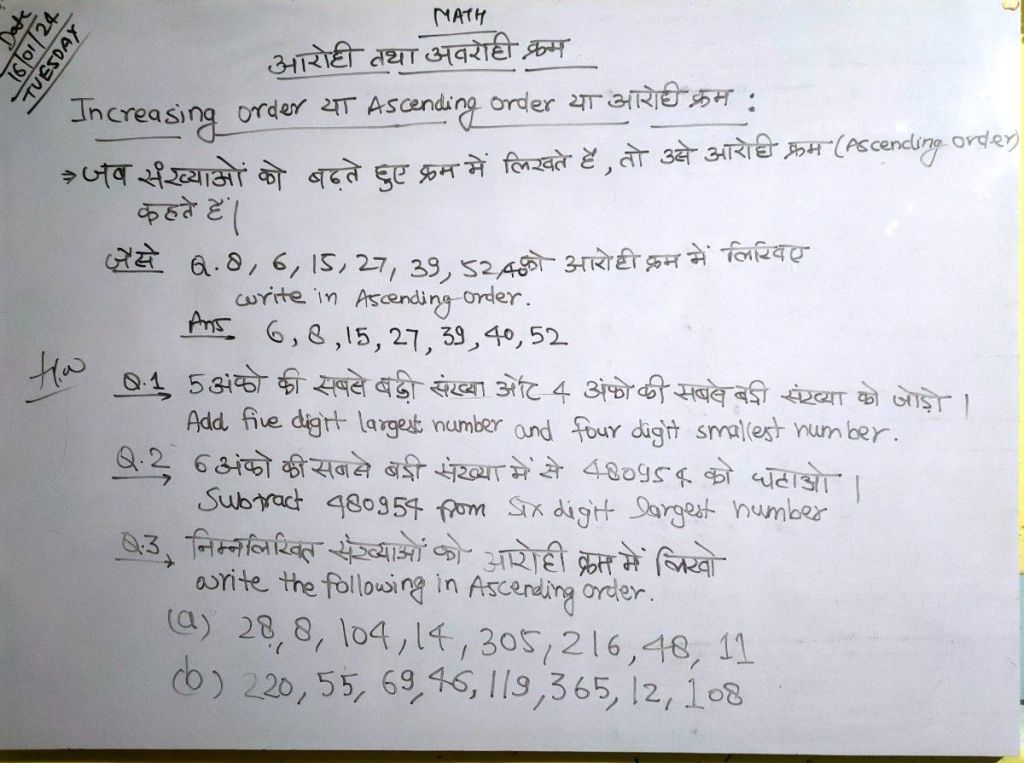 Date
16/01/24
TUESDAY
MATH
आरोही तथा अवरोही क्रम
Increasing order या Ascending order या आरोही क्रम :
⇒ जब संख्याओं को बढ़ते हुए क्रम में लिखते हैं, तो उसे आरोही क्रम (Ascending order)
कहते हैं|
जैसे Q. 8, 6, 15, 27, 39, 52, 40 को आरोही क्रम में लिखिए
write in Ascending order.
Ans 6, 8, 15, 27, 39, 40, 52
H.W
Q.1 5 अंको की सबसे बड़ी संख्या और 4 अंको की सबसे बड़ी संख्या को जोड़ो |
Add five digit largest number and four digit smallest number.
Q.2 6 अंको की सबसे बड़ी संख्या में से 480954 को घटाओ |
Subtract 480954 from Six digit largest number
Q.3 निम्नलिखित संख्याओं को आरोही क्रम में लिखो
write the following in Ascending order.
(a) 28, 8, 104, 14, 305, 216, 48, 11
(b) 220, 55, 69, 46, 119, 365, 12, 108